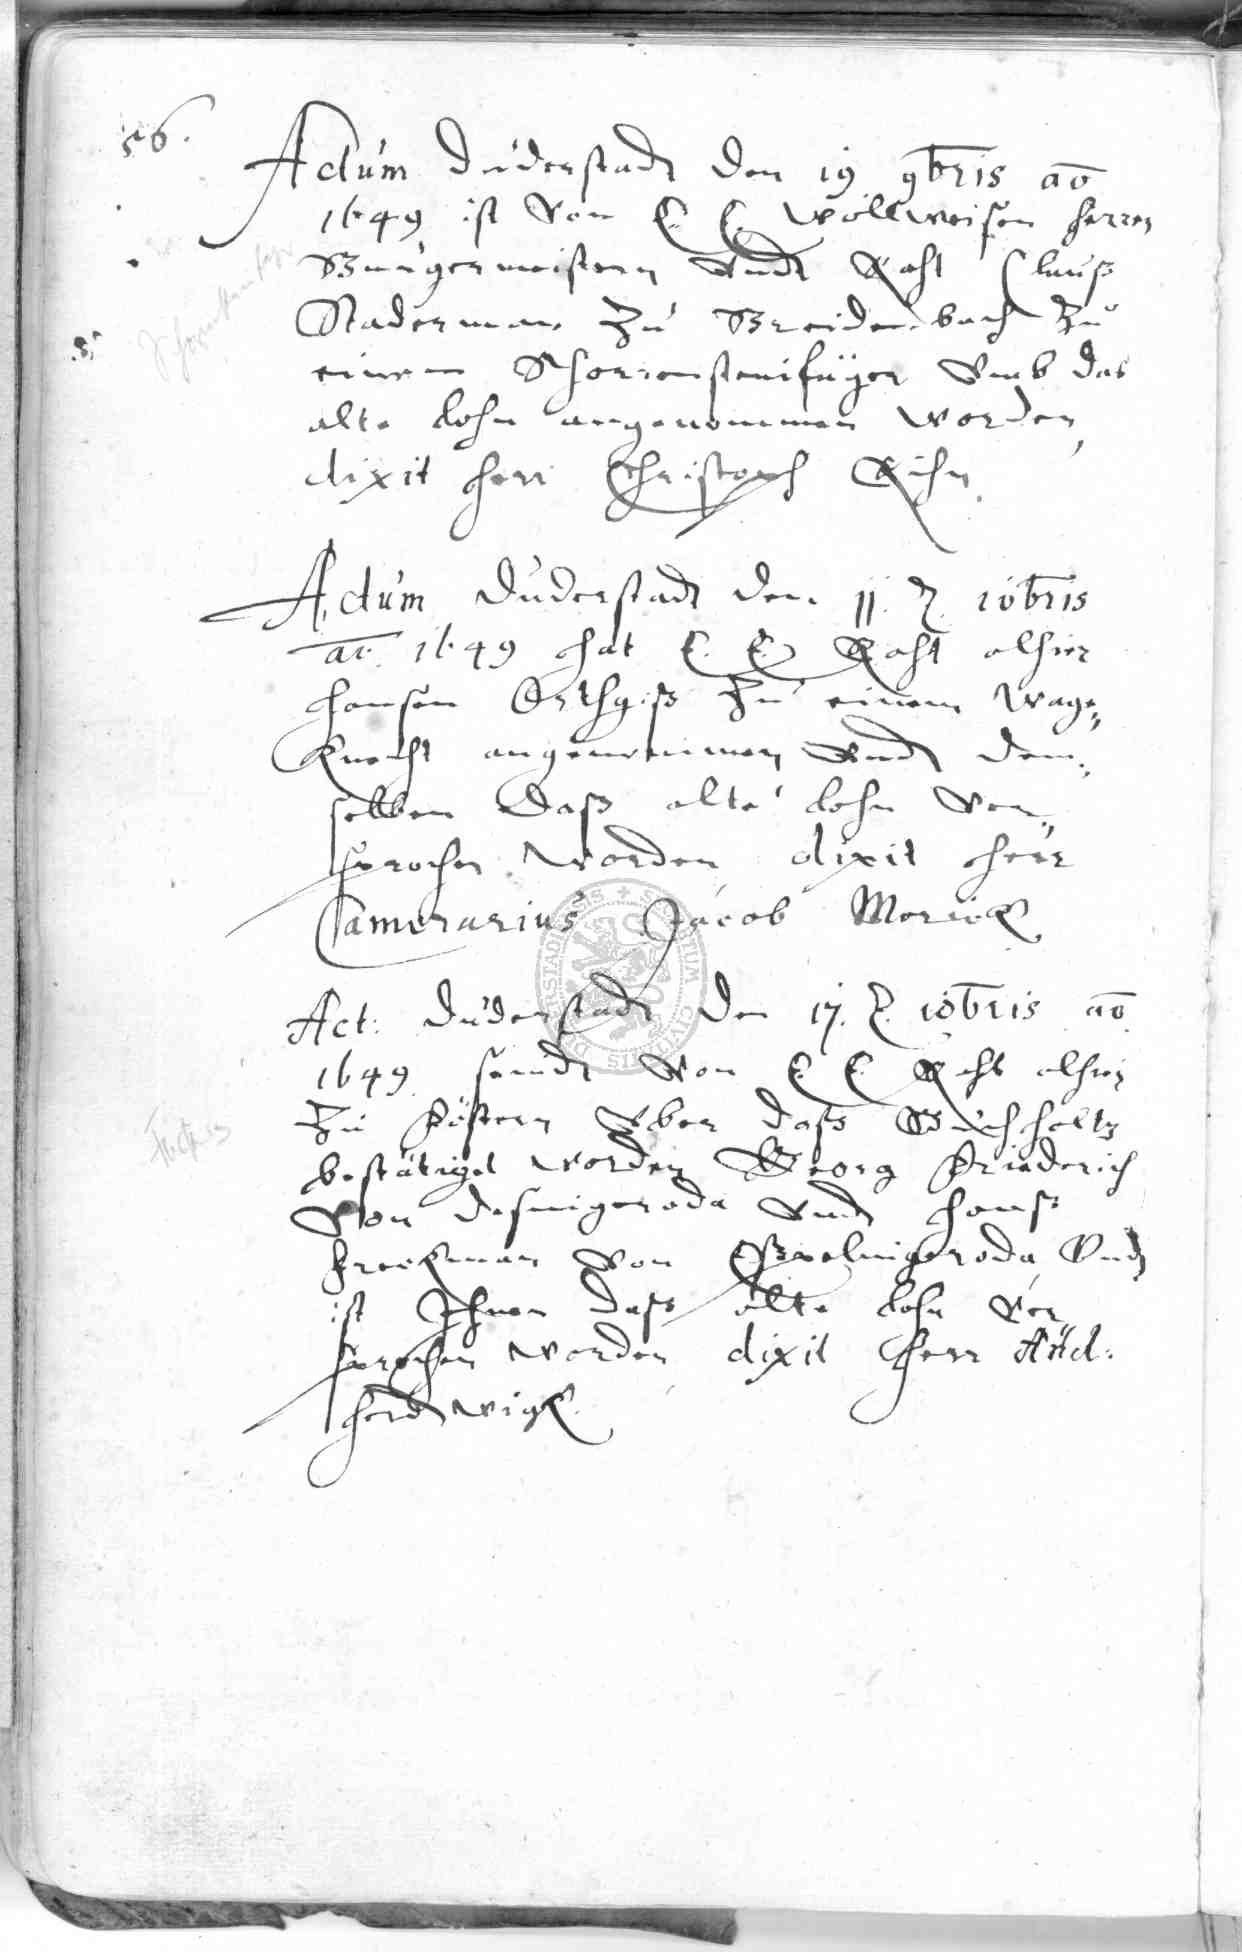 56.
Actum Duderstadt den 19 9bris ao
1649 ist von E. E. Wollweisen herren
Burgermeistern undt Raht Clauß
Staderman zu Breidenbach zu
einem Schorrensteinfüger umb das
alte lohn angenommen worden,
dixit herr Christoph Kühn.
Actum Duderstadt den 11. Xbris
ao. 1649 hat E. E. Raht alhier
Hansen zu einem Wage„
Knecht angenommen undt dem„
selben daß alte lohn ver„
sprochen worden dixit herr
Camerarius Jacob Morick
Act: Duderstadt den 17. 10bris ao
1649 seindt von E. E. Raht alhier
zu förstern über daß Buchholtz
bestätiget worden Georg Friederich
von Desingeroda undt Hanß
von Esplingeroda Undt
ist Ihnen daß alte lohn ver„
sprochen worden dixit herr And:
Herdtwigk.
Schornsteinfeger
SIGILLUM CIVITATIS DUDERSTADIENSIS